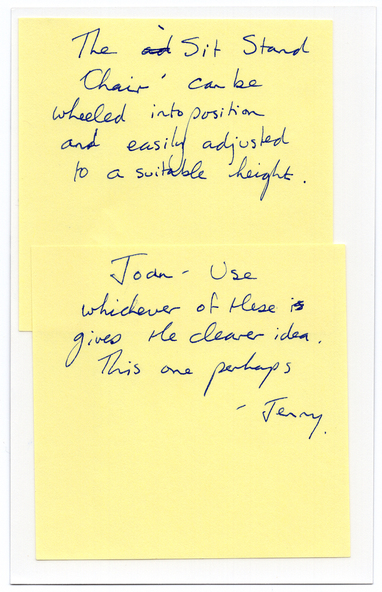 The 'Sit Stand
Chair' can be
wheeled into position
and easily adjusted
to a suitable height.
Joan - Use
whichever of these is
gives the clearer idea.
This one perhaps
- Jenny.